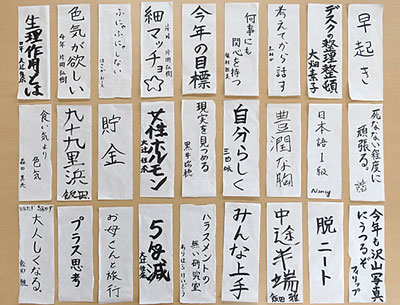 早起き
デスクの整理整頓
大畑素子
考えてから話す
何事にも
関心を持つ
今年の目標
細マッチョ☆
4年 片岡弘樹
ふにゃふにゃしない
色気が欲しい
4年 片岡弘樹
生理作用とは
死なない程度に
頑張る。
日本語1級
Nancy
豊潤な胸
自分らしく
現実を見つめる
黒井瑞穂
女性ホルモン
貯金
九十九里浜
飯田
食い気より
色気
今年も沢山写真
にうつるぞ
フィリップ
脱ニート
中途半端
飯田
みんな上手
ハラスメントの
無い研究室
お母さんと旅行
プラス思考
大人しくなる。